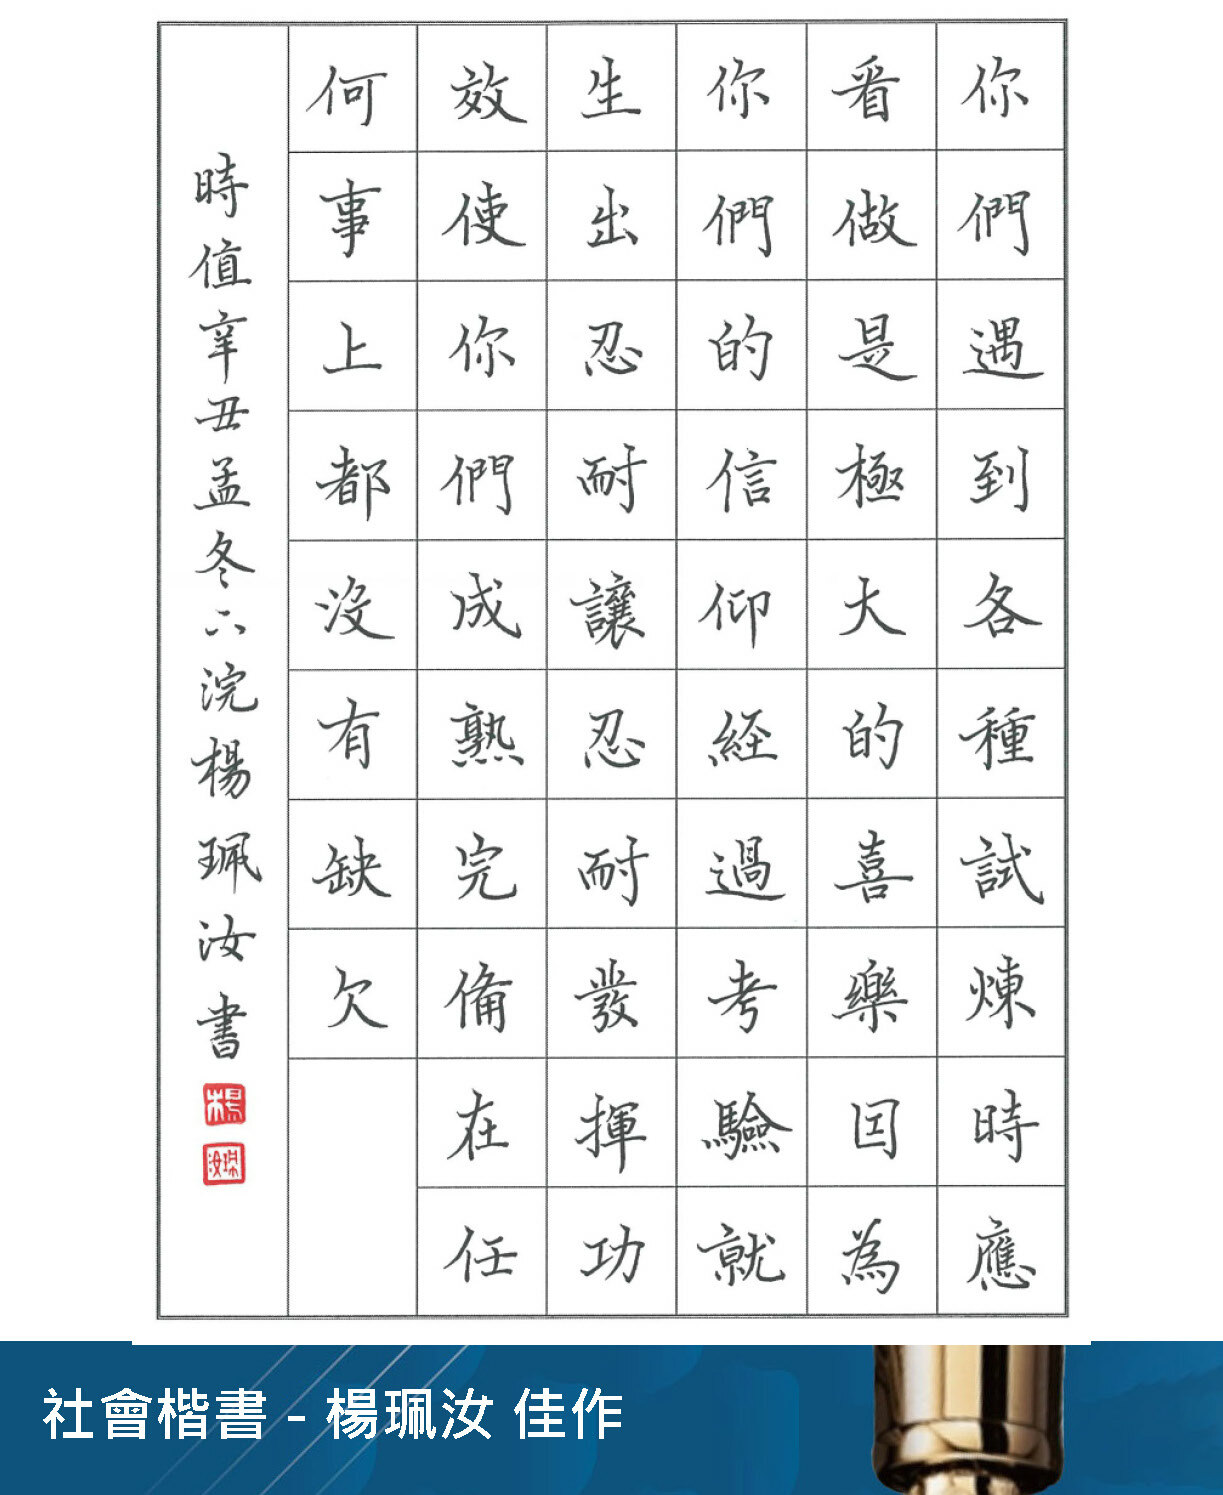 你們遇到各種試煉時應
看做是極大的喜樂因為
你們的信仰經過考驗就
生出忍耐讓忍耐發揮功
效使你們成熟完備在任
何事上都沒有缺欠
時值辛丑孟冬六浣楊珮汝書
楊
珮汝
社會楷書 - 楊珮汝 佳作